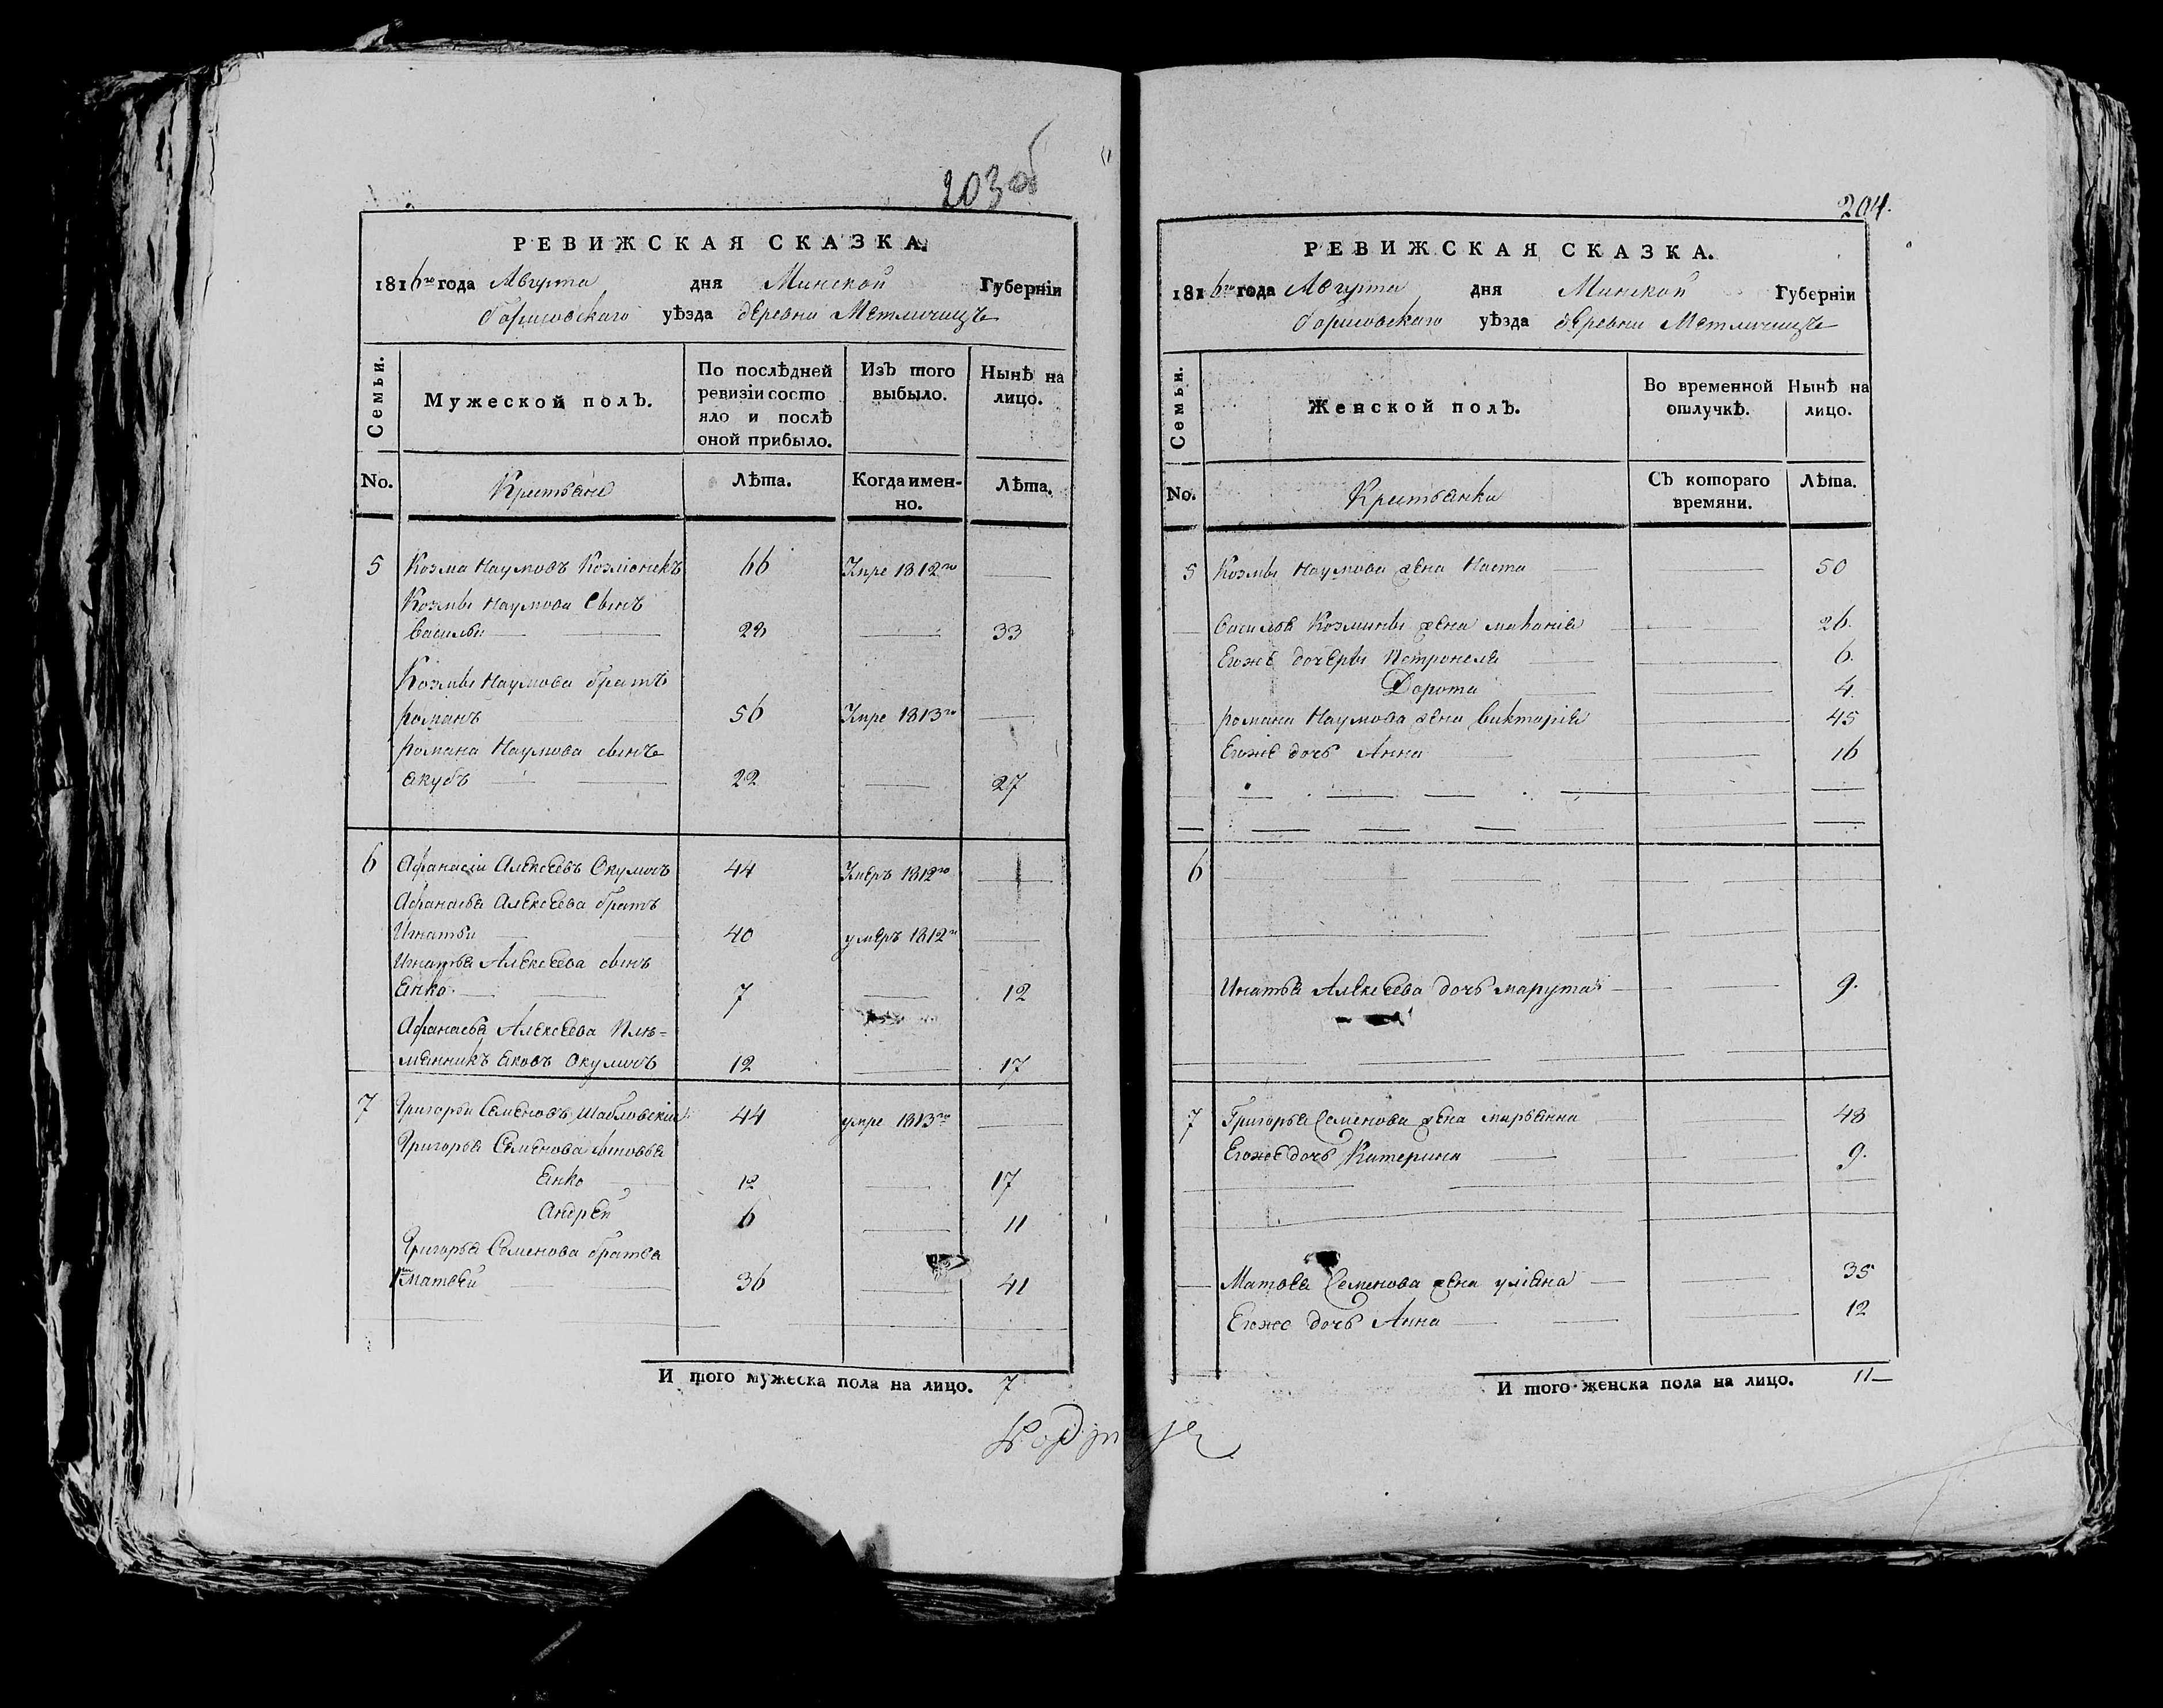 203 об
РЕВИЖСКАЯ СКАЗКА.
1816го года Августа дня Минской Губерніи
Борисовскаго уѣзда деревни Метличицъ
Семьи.
Мужеской полъ.
По послѣдней ревизіи состо яло и послѣ оной прибыло.
Изъ того выбыло.
Нынѣ на лицо.
No. Крестьяне Лѣта. Когда имен-но. Лѣта.
5 Козма Наумовъ Козлюнекъ 66 Умре 1812го —
Козмы Наумова сынъ
Василій — 28 — 33
Козмы Наумова братъ
Романъ 56 Умре 1813го —
Романа Наумова сынъ
Якубъ — 22 — 27
6 Афанасій Алексеевъ Окуличъ 44 Умеръ 1812го —
Афанасья Алексеева братъ
Игнатій — 40 умеръ 1812го —
Игнатья Алексеева сынъ
Янко — 7 — 12
Афанасья Алексеева Пле-
мянникъ Яковъ Окуличъ 12 — 17
7 Григорій Семеновъ Шабловскій 44 умре 1813го —
Григорья Семенова сыновья
Янко 12 — 17
Андрей 6 — 11
Григорья Семенова братья
1й Матвей 36 — 41
И того мужеска пола на лицо. 7
204.
РЕВИЖСКАЯ СКАЗКА.
1816го года Августа дня Минской Губерніи
Борисовскаго уѣзда деревни Метличицъ
Семьи.
Женской полъ.
Во временной отлучкѣ.
Нынѣ на лицо.
No. Крестьянки Съ котораго времяни. Лѣта.
5 Козмы Наумова жена Наста — 50
Василья Козмины жена Маланія — 26.
Егоже дочеры Петронеля — 6.
Дорота — 4.
Романа Наумова жена Викторія — 45
Егоже дочь Анна — 16
6
Игнатья Алексеева дочь Марута — 9.
7 Григорья Семенова жена Марьянна — 48
Егоже дочь Катерина — 9.
Матвея Семенова жена Уліяна — 35
Егоже дочь Анна — 12
И того женска пола на лицо. 11—